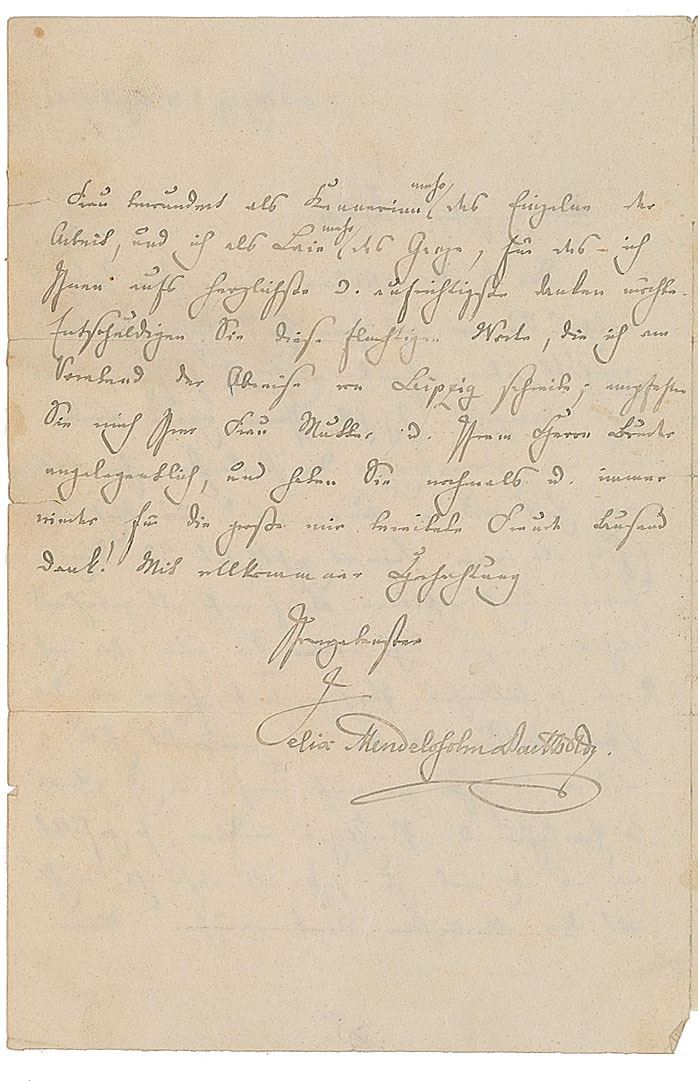 Frau bewundert als Kennerinn mehr das Einzelne der
Arbeit, und ich als Laie mehr das Ganze, für das ich
Ihnen aufs herzlichste u. aufrichtigste danken möchte.
Entschuldigen Sie diese flüchtigen Worte, die ich am
Vorabend der Abreise von Leipzig schreibe; empfehlen
Sie mich Ihrer Frau Mutter u. Ihrem Herrn Bruder
angelegentlich, und haben Sie nochmals u. immer
wieder für die große mir bereitete Freude tausend
Dank! Mit vollkommner Hochachtung
Ihr ergebenster
Felix Mendelssohn Bartholdy.